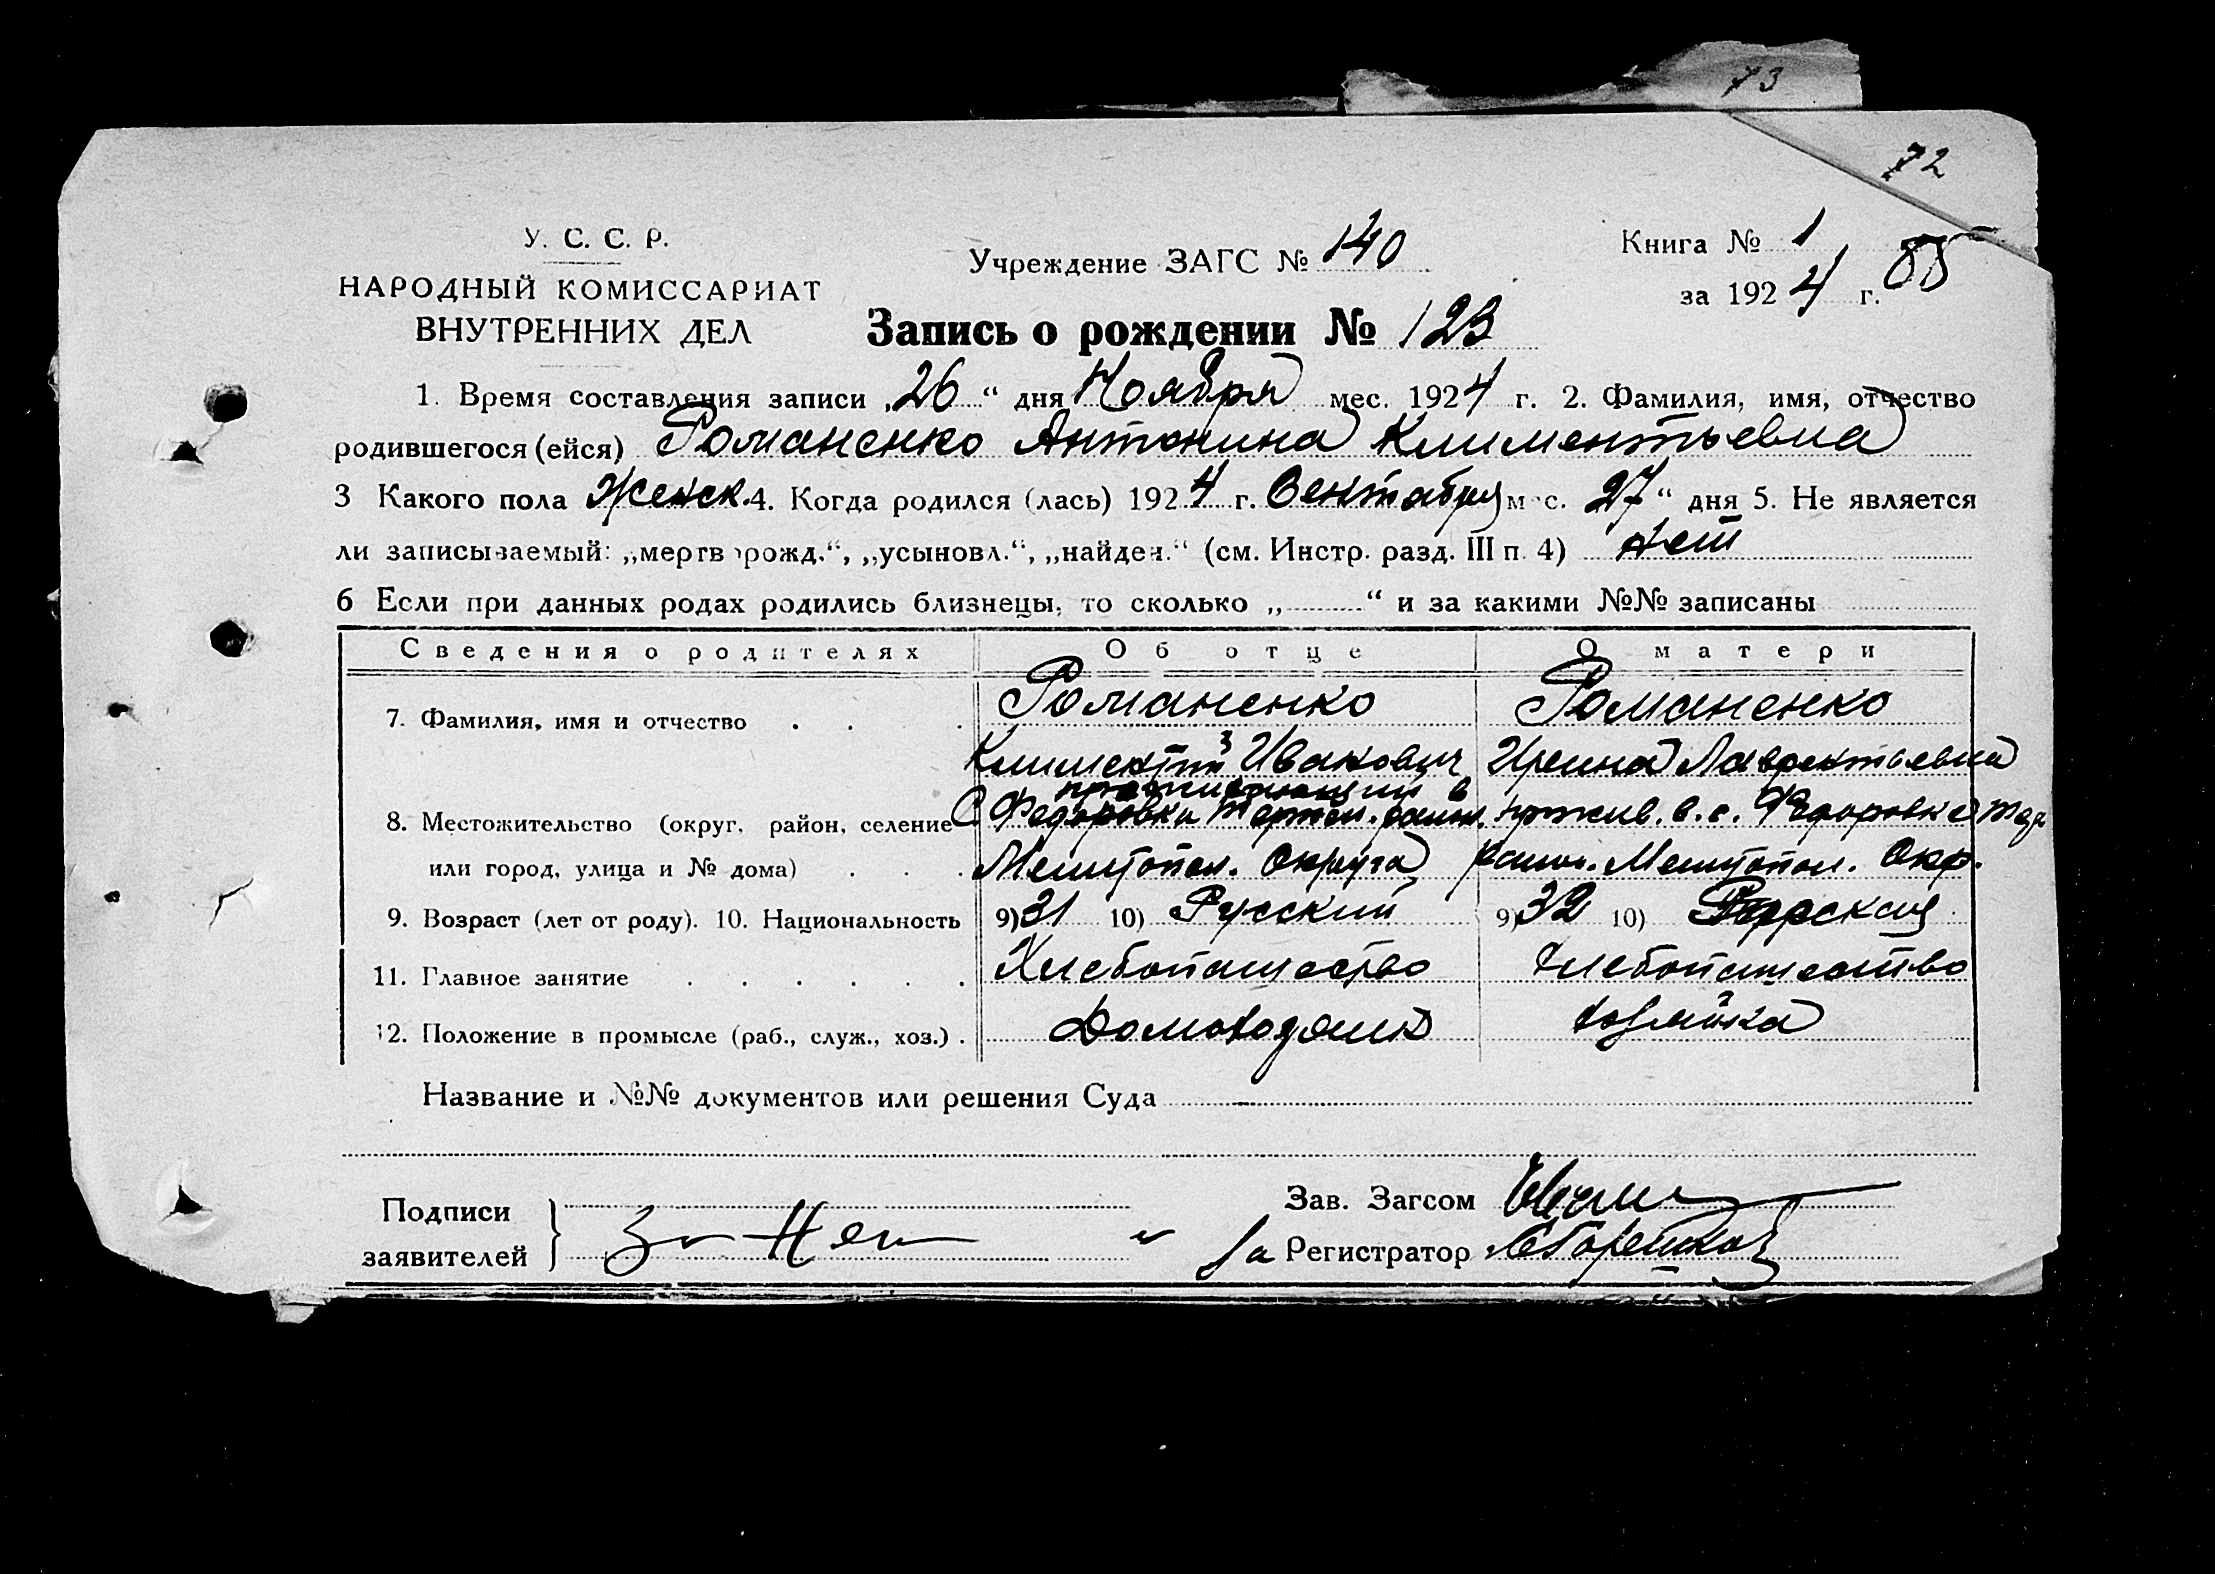 73
72
У. С. С. Р.
НАРОДНЫЙ КОМИССАРИАТ
ВНУТРЕННИХ ДЕЛ
Учреждение ЗАГС № 140
Книга № 1
за 1924 г. 85
Запись о рождении № 123
1. Время составления записи „26“ дня Ноября мес. 1924 г. 2. Фамилия, имя, отчество
родившегося (ейся) Романенко Антонина Климентьевна
3 Какого пола Женск. 4. Когда родился (лась) 1924 г. Сентября мес. 27“ дня 5. Не является
ли записываемый: „мертворожд.“, „усыновл.“, „найден.“ (см. Инстр. разд. III п. 4) нет
6 Если при данных родах родились близнецы, то сколько „ “ и за какими №№ записаны
Сведения о родителях Об отце О матери
7. Фамилия, имя и отчество Романенко Романенко
Климентий Иванович Ирина Лаврентьевна
проживающий в
8. Местожительство (округ, район, селение С Федоровки район. прожив. в. с. Федоровке
или город, улица и № дома) Мелитопол. Округа район. Мелитопол. Окр.
9. Возраст (лет от роду). 10. Национальность 9) 31 10) Русский 9) 32 10) Русская
11. Главное занятие Хлебопашество Хлебопашество
12. Положение в промысле (раб., служ., хоз.) Домохозяин хозяйка
Название и №№ документов или решения Суда —
Подписи
заявителей
Зав. Загсом
За Регистратор